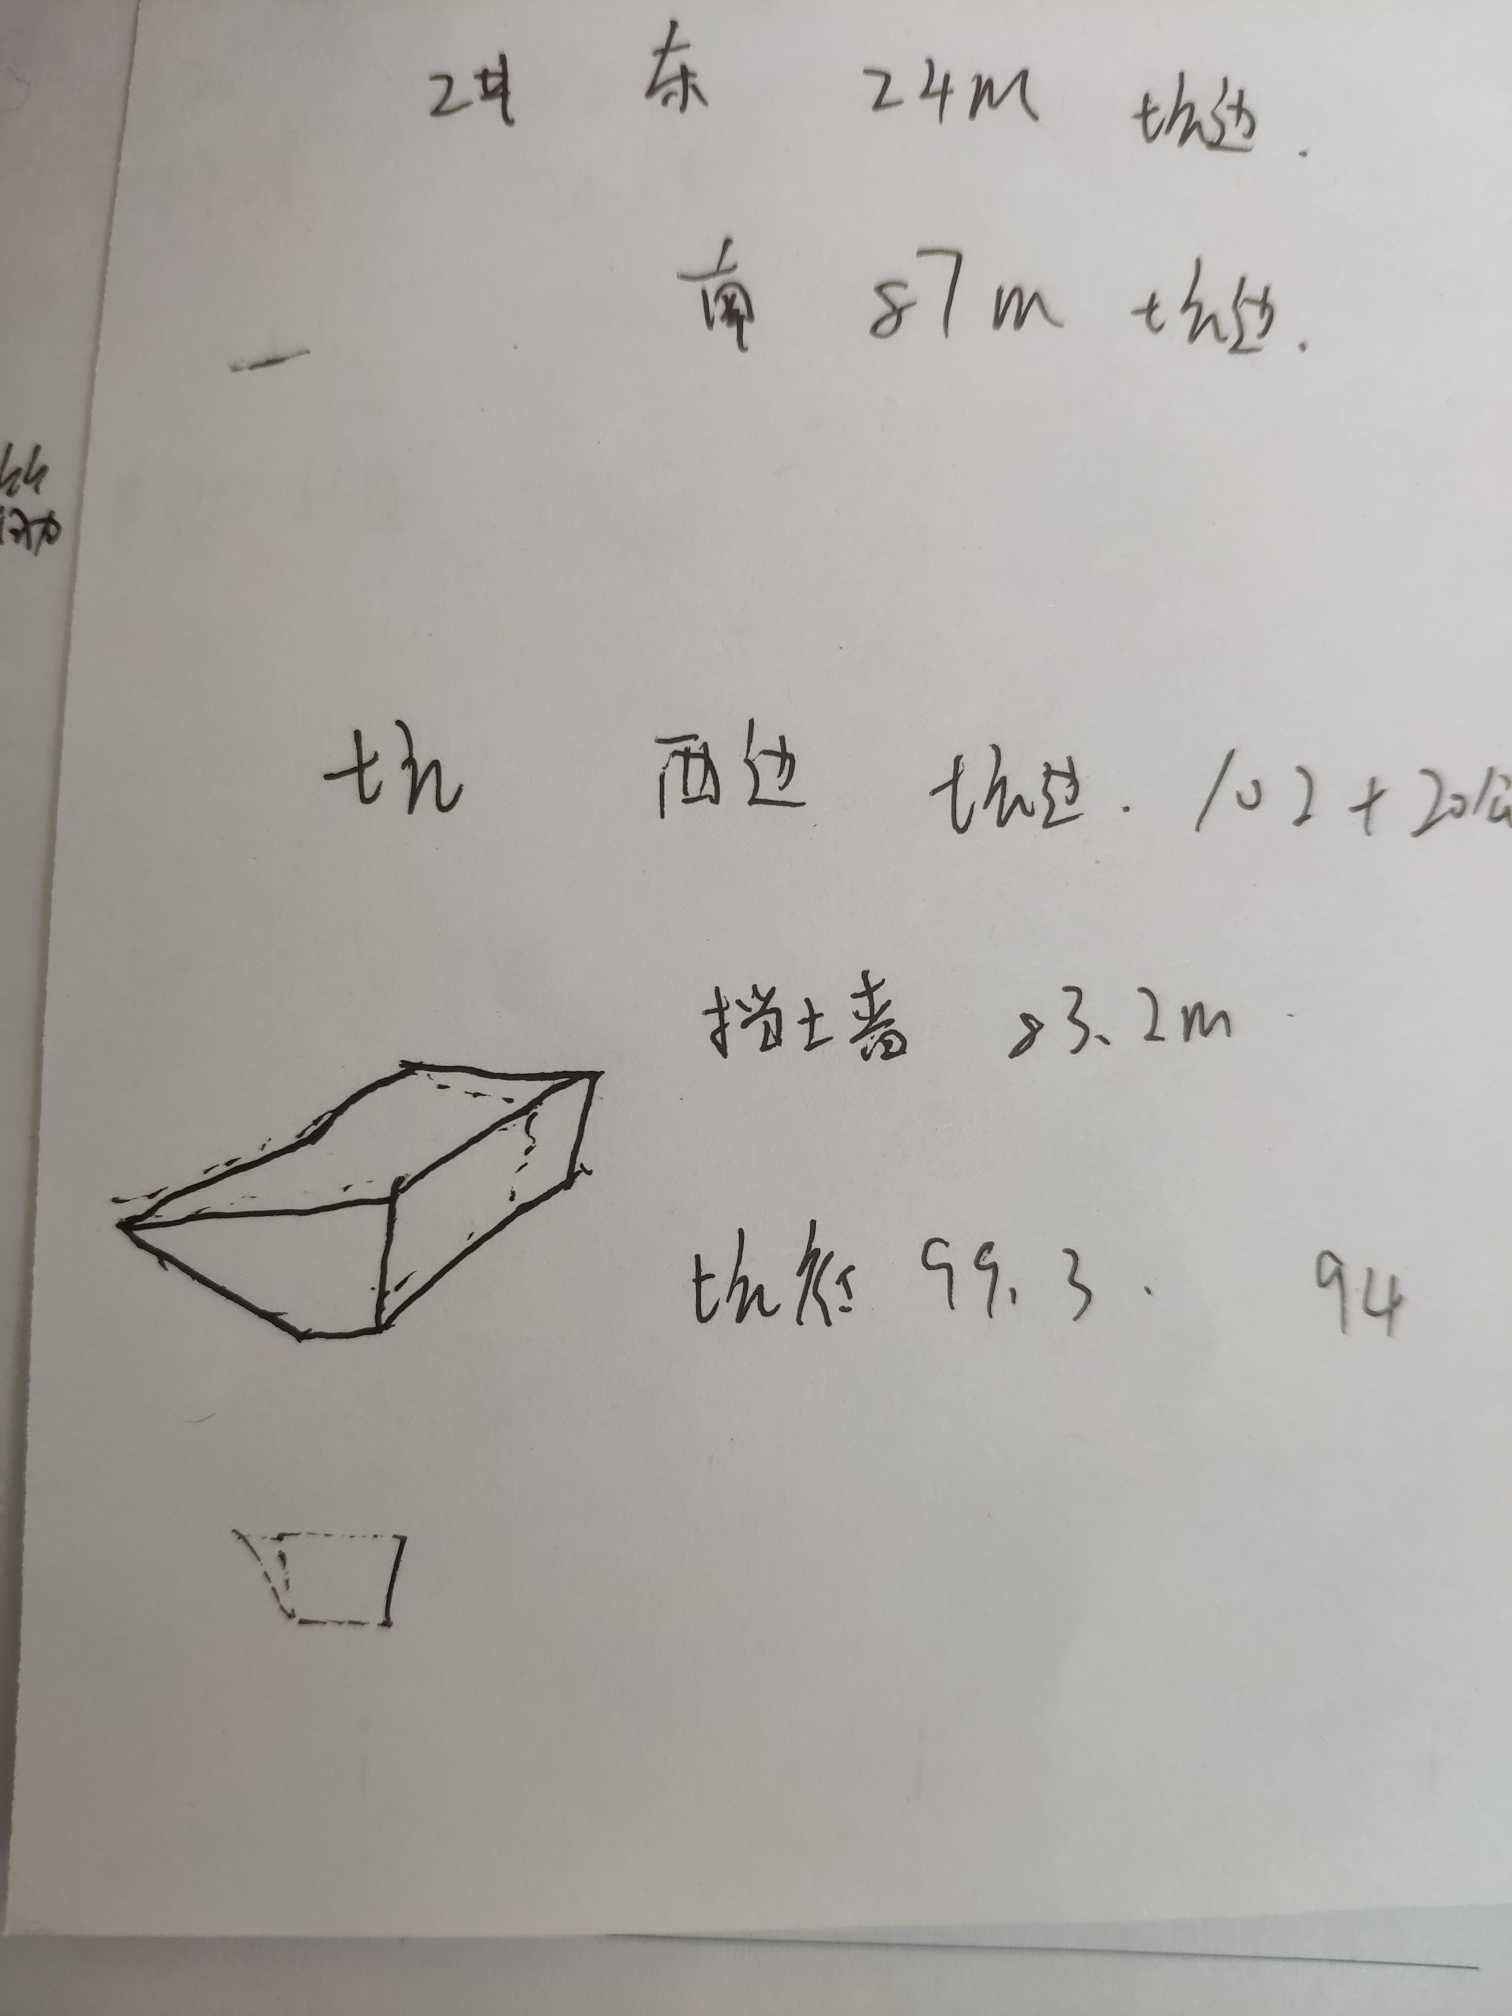 2井 东 24m 坑边.
南 87m 坑边.
坑 西边 坑边. 102+20
挡土墙 83.2m
坑底 99.3. 94